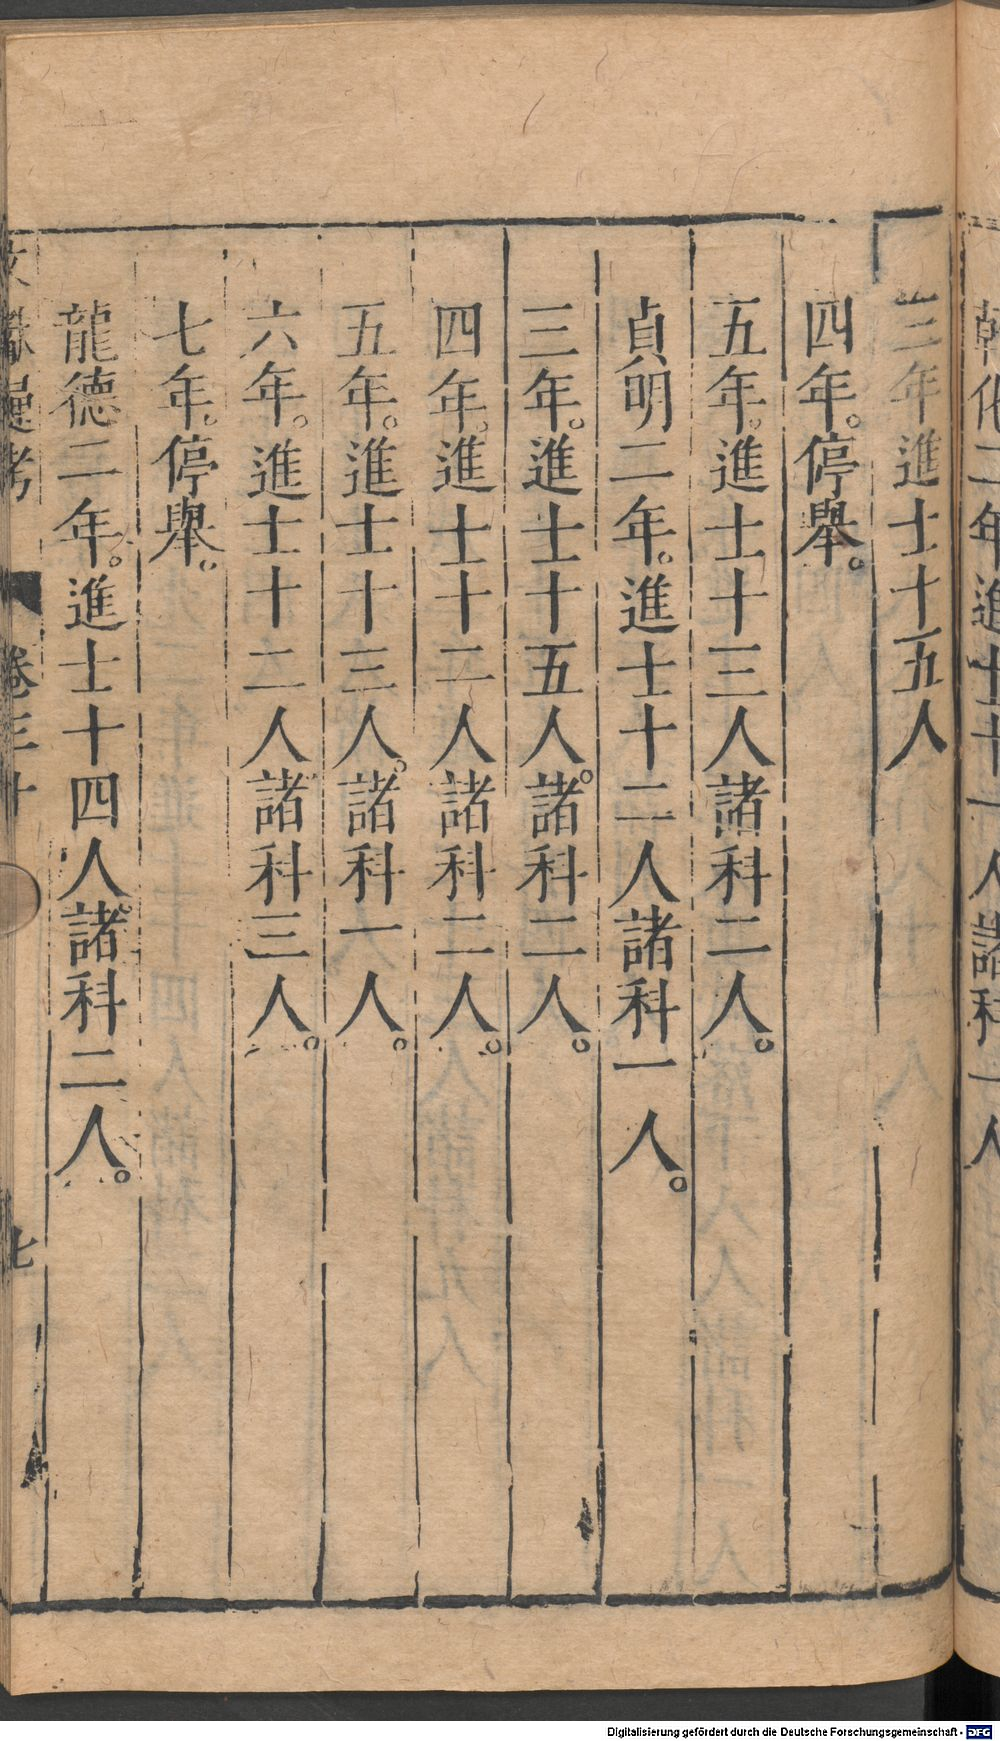 乾化二年進士十一人諸科一人
三年進士十五人
四年。停舉。
五年。進士十三人諸科二人。
貞明二年。進士十二人諸科一人。
三年。進士十五人。諸科二人。
四年。進士十二人諸科二人。
五年。進士十三人。諸科一人。
六年。進士十二人諸科三人。
七年。停舉。
龍德二年。進士十四人。諸科二人。
文獻通考 卷三十 七
Digitalisierung gefördert durch die Deutsche Forschungsgemeinschaft - DFG